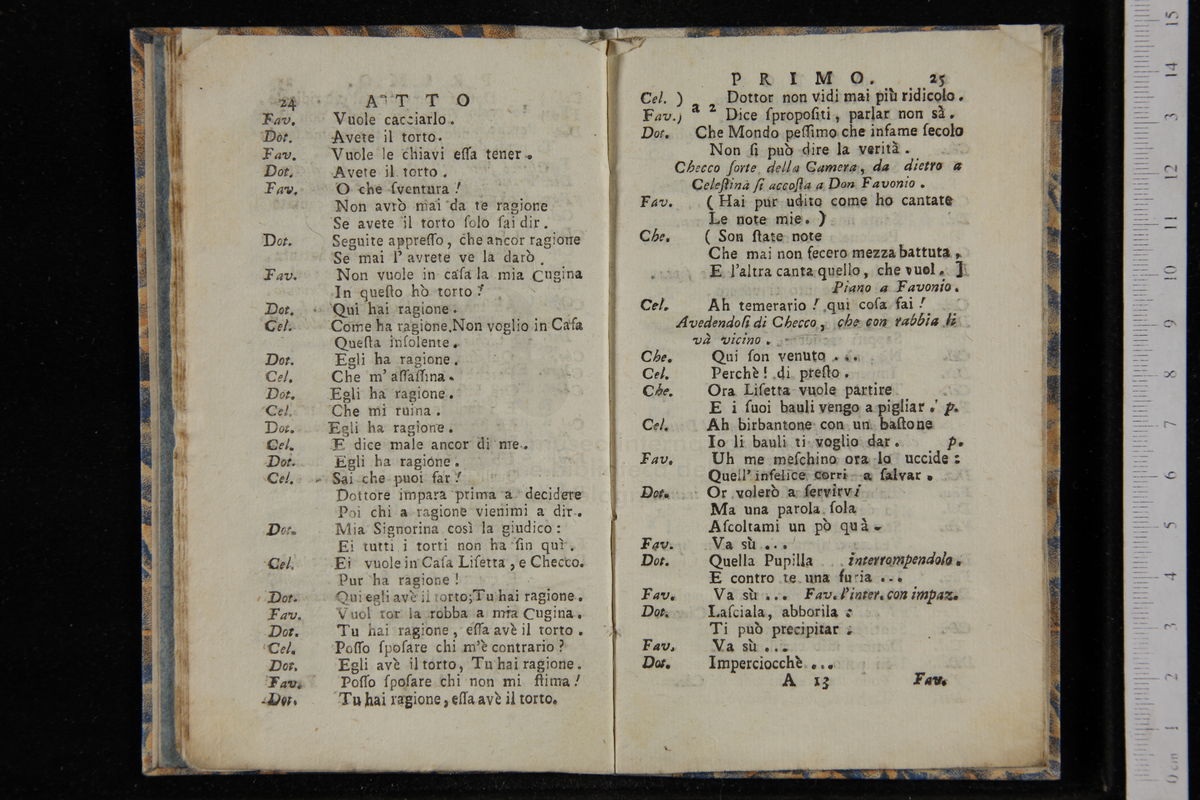 24 ATTO
Fav. Vuole cacciarlo.
Dot. Avete il torto.
Fav. Vuole le chiavi eſſa tener.
Dot. Avete il torto.
Fav. O che ſventura!
Non avrò mai da te ragione
Se avete il torto ſolo ſai dir.
Dot. Seguite appreſſo, che ancor ragione
Se mai l'avrete ve la darò.
Fav. Non vuole in caſa la mia Cugina
In queſto hò torto?
Dot. Quì hai ragione.
Cel. Come ha ragione. Non voglio in Caſa
Queſta inſolente.
Dot. Egli ha ragione.
Cel. Che m'aſſaſſina.
Dot. Egli ha ragione.
Cel. Che mi ruina.
Dot. Egli ha ragione.
Cel. E dice male ancor di me.
Dot. Egli ha ragione.
Cel. Sai che puoi far!
Dottore impara prima a decidere
Poi chi a ragione vienimi a dir.
Dot. Mia Signorina così la giudico:
Ei tutti i torti non ha fin quì.
Cel. Ei vuole in Caſa Liſetta, e Checco.
Pur ha ragione!
Dot. Qui egli avè il torto; Tu hai ragione.
Fav. Vuol tor la robba a mia Cugina.
Dot. Tu hai ragione, eſſa avè il torto.
Cel. Poſſo ſpoſare chi m'è contrario?
Dot. Egli avè il torto, Tu hai ragione.
Fav. Poſſo ſpoſare chi non mi ſtima!
Dot. Tu hai ragione, eſſa avè il torto.
PRIMO. 25
Cel. ) a 2 Dottor non vidi mai più ridicolo.
Fav. ) Dice ſpropoſiti, parlar non sà.
Dot. Che Mondo peſſimo che infame ſecolo
Non ſi può dire la verità.
Checco ſorte della Camera, da dietro a
Celeſtina ſi accoſta a Don Favonio.
Fav. (Hai pur udito come ho cantate
Le note mie.)
Che. (Son ſtate note
Che mai non fecero mezza battuta,
E l'altra canta quello, che vuol.]
Piano a Favonio.
Cel. Ah temerario! qui coſa fai!
Avedendoſi di Checco, che con rabbia li
và vicino.
Che. Qui ſon venuto...
Cel. Perchè! di preſto.
Che. Ora Liſetta vuole partire
E i ſuoi bauli vengo a pigliar. p.
Cel. Ah birbantone con un baſtone
Io li bauli ti voglio dar. p.
Fav. Uh me meſchino ora lo uccide:
Quell'infelice corri a ſalvar.
Dot. Or volerò a ſervirvi
Ma una parola ſola
Aſcoltami un pò quà.
Fav. Va sù...
Dot. Quella Pupilla interrompendolo.
E contro te una furia...
Fav. Va sù... Fav. l'inter. con impaz.
Dot. Laſciala, abborila:
Ti può precipitar:
Fav. Va sù...
Dot. Imperciocchè...
A 13 Fav.
0 cm 1 2 3 4 5 6 7 8 9 10 11 12 13 14 15